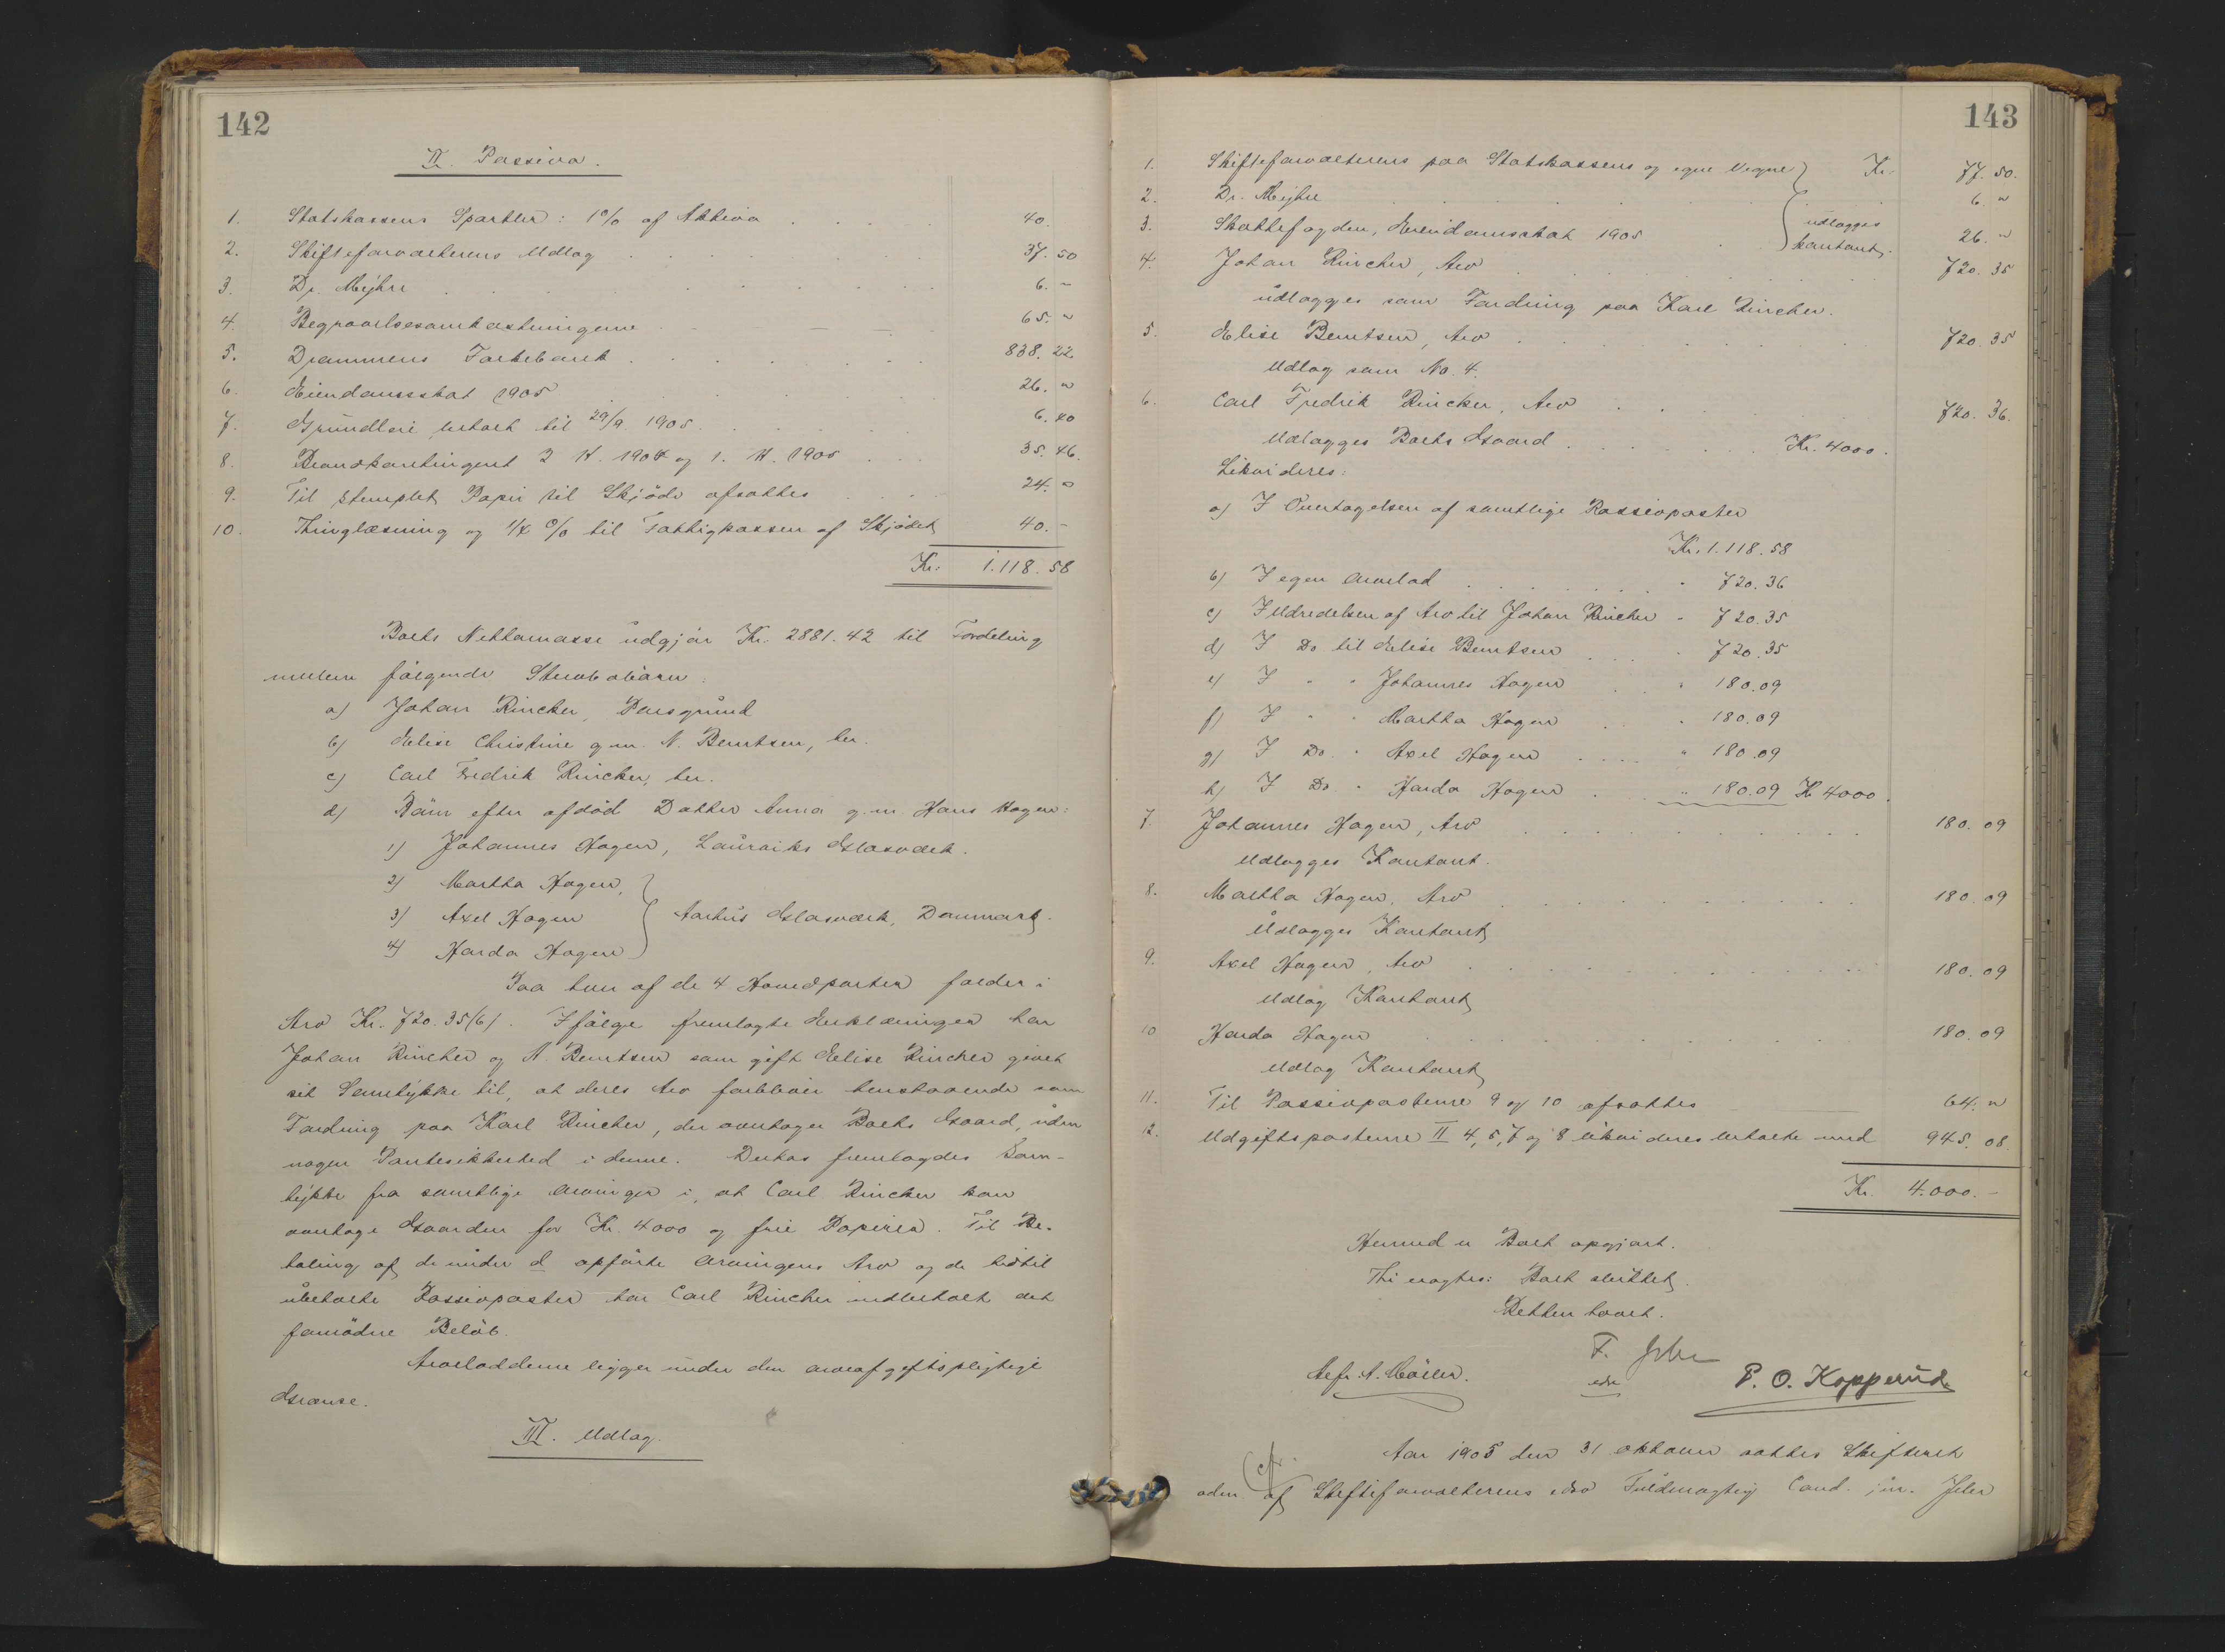 142
II. Passiva.
1. Statskassens Sportler: 1% af Aktiva 40.
2. Skifteforvalterens Udlæg 37.50
3. Dr. Mejhre 6.–
4. Begravelsesomkostningerne 65."
5. Drammens Folkebank 838.22
6. Eiendomsskat 1905 26."
7. Grundleie betalt til 29/9 1905 6.40
8. Brandkontingent 2 H. 1904 og 1. H. 1905 35.46.
9. Til stemplet Papir til Skjöde afsættes 24."
10. Thinglæsning og 1/4 % til Fattigkassen af Skjödet 40.–
Kr. 1.118.58
Boets Nettomasse udgjör Kr. 2881.42 til Fordeling
mellem fölgende Stervbobörn:
a) Johan Rincker, Porsgrund
b) Elise Christine g.m. N. Berntsen, her.
c) Carl Fredrik Rincker, her.
d) Börn efter afdöd Datter Anna g.m. Hans Hagen:
1) Johannes Hagen, Laurviks Glasværk.
2) Martha Hagen,
3) Axel Hagen Aarhus Glasværk, Danmark.
4) Harda Hagen
Paa hver af de 4 Hovedparter falder i
Arv Kr. 720.35(6). Ifölge fremlagte Erklæringer har
Johan Rincker og N. Berntsen som gift Elise Rincker givet
sit Samtykke til, at deres Arv forbliver henstaaende som
Fordring paa Karl Rincker, der overtager Boets Gaard, uden
nogen Pantesikkerhed i denne. Derhos fremlagdes Sam-
tykke fra samtlige Arvinger i, at Carl Rincker kan
overtage Gaarden for Kr. 4000 og frie Papirer. Til Be-
taling af de under d opförte Arvingers Arv og de hidtil
ubetalte Passivposter har Carl Rincker indbetalt det
fornödne Belöb.
Arvelodderne ligger under den arveafgiftspligtige
Grænse.
III. Udlæg.
143
1. Skifteforvalterens paa Statskassens og egne Vegne Kr. 77.50.
2. Dr. Mejhre 6."
3. Skattefogden, Eiendomsskat 1905 udlægges kontant. 26."
4. Johan Rincker, Arv 720.35
udlægges som Fordring paa Karl Rincker.
5. Elise Berntsen, Arv 720.35
Udlæg som No. 4.
6. Carl Fredrik Rincker, Arv 720.36.
Udlægges Boets Gaard Kr. 4000.
Likvideres:
a) I Overtagelsen af samtlige Passivposter
Kr. 1.118.58
b) I egen Arvelod " 720.36
c) I Udredelsen af Arv til Johan Rincker " 720.35
d) I Do til Elise Berntsen " 720.35
e) I " " Johannes Hagen " 180.09
f) I " " Martha Hagen " 180.09
g) I Do. " Axel Hagen " 180.09
h) I Do " Harda Hagen " 180.09 Kr 4000.
7. Johannes Hagen, Arv 180.09
Udlægges Kontant.
8. Martha Hagen, Arv 180.09
Udlægges Kontant
9. Axel Hagen, Arv 180.09
Udlæg Kontant
10 Harda Hagen 180.09
Udlæg Kontant
11. Til Passivposterne 9 og 10 afsættes 64."
12. Udgiftsposterne II 4, 5, 7 og 8 likvideres betalte med 945.08.
Kr. 4.000.–
Hermed er Boet opgjort.
Thi eragtes: Boet sluttet.
Retten hævet.
F. 
edsv
P. O. Kopperud
Aar 1905 den 31 oktober sattes Skifteret
af Skifteforvalterens edsv Fuldmægtig Cand. jur.